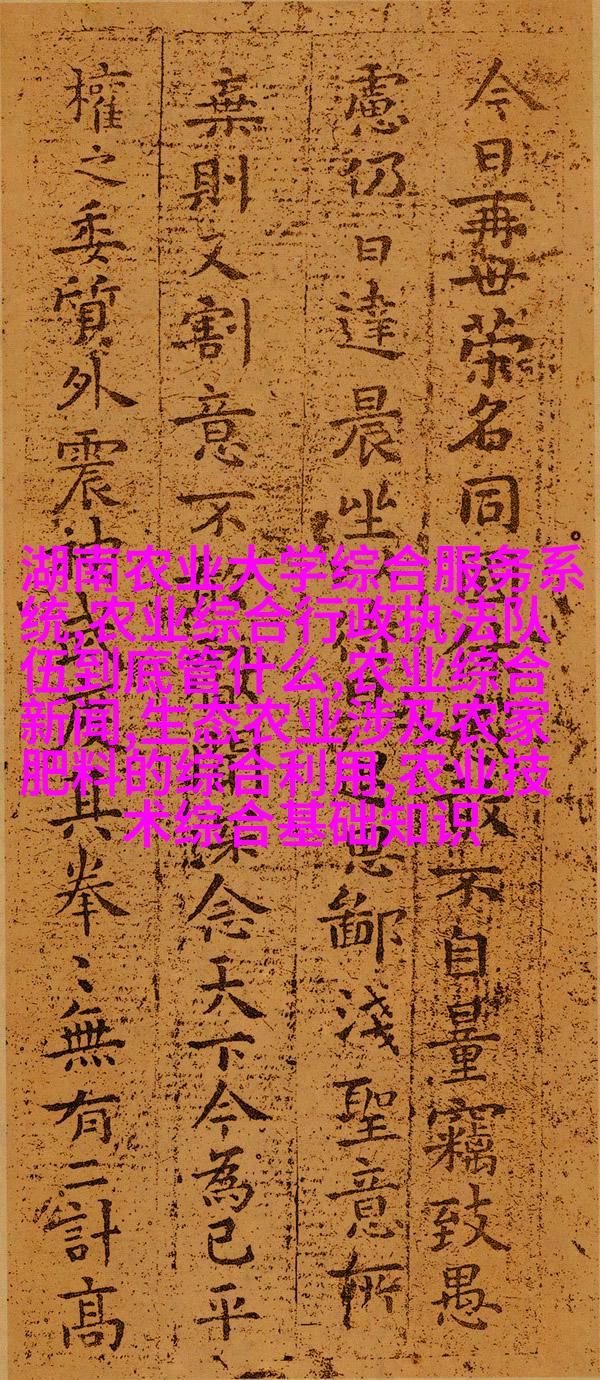 今日再世榮名同不自量竊致愚
慮仍日達晨坐思鄙淺聖意所
棄則又割意不深念天下今為已平
權之委質外震度其拳〻無有二計高
湖南农业大学综合服务系
统,农业综合行政执法队
伍到底管什么,农业综合
新闻,生态农业涉及农家
肥料的综合利用,农业技
术综合基础知识